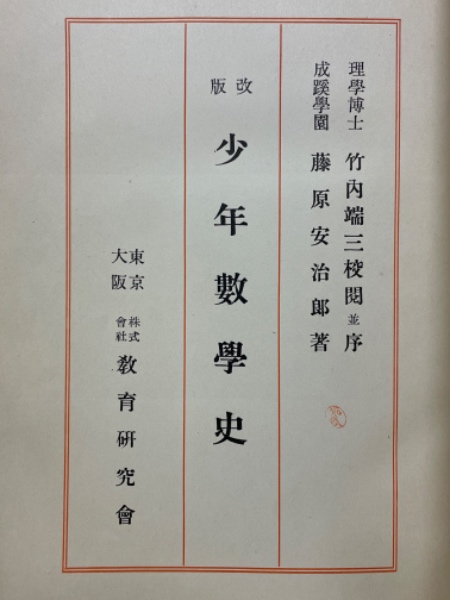 理學博士 竹內端三校閱並序
成蹊學園 藤原安治郞著
改版
少年數學史
東京
大阪
株式會社 敎育硏究會